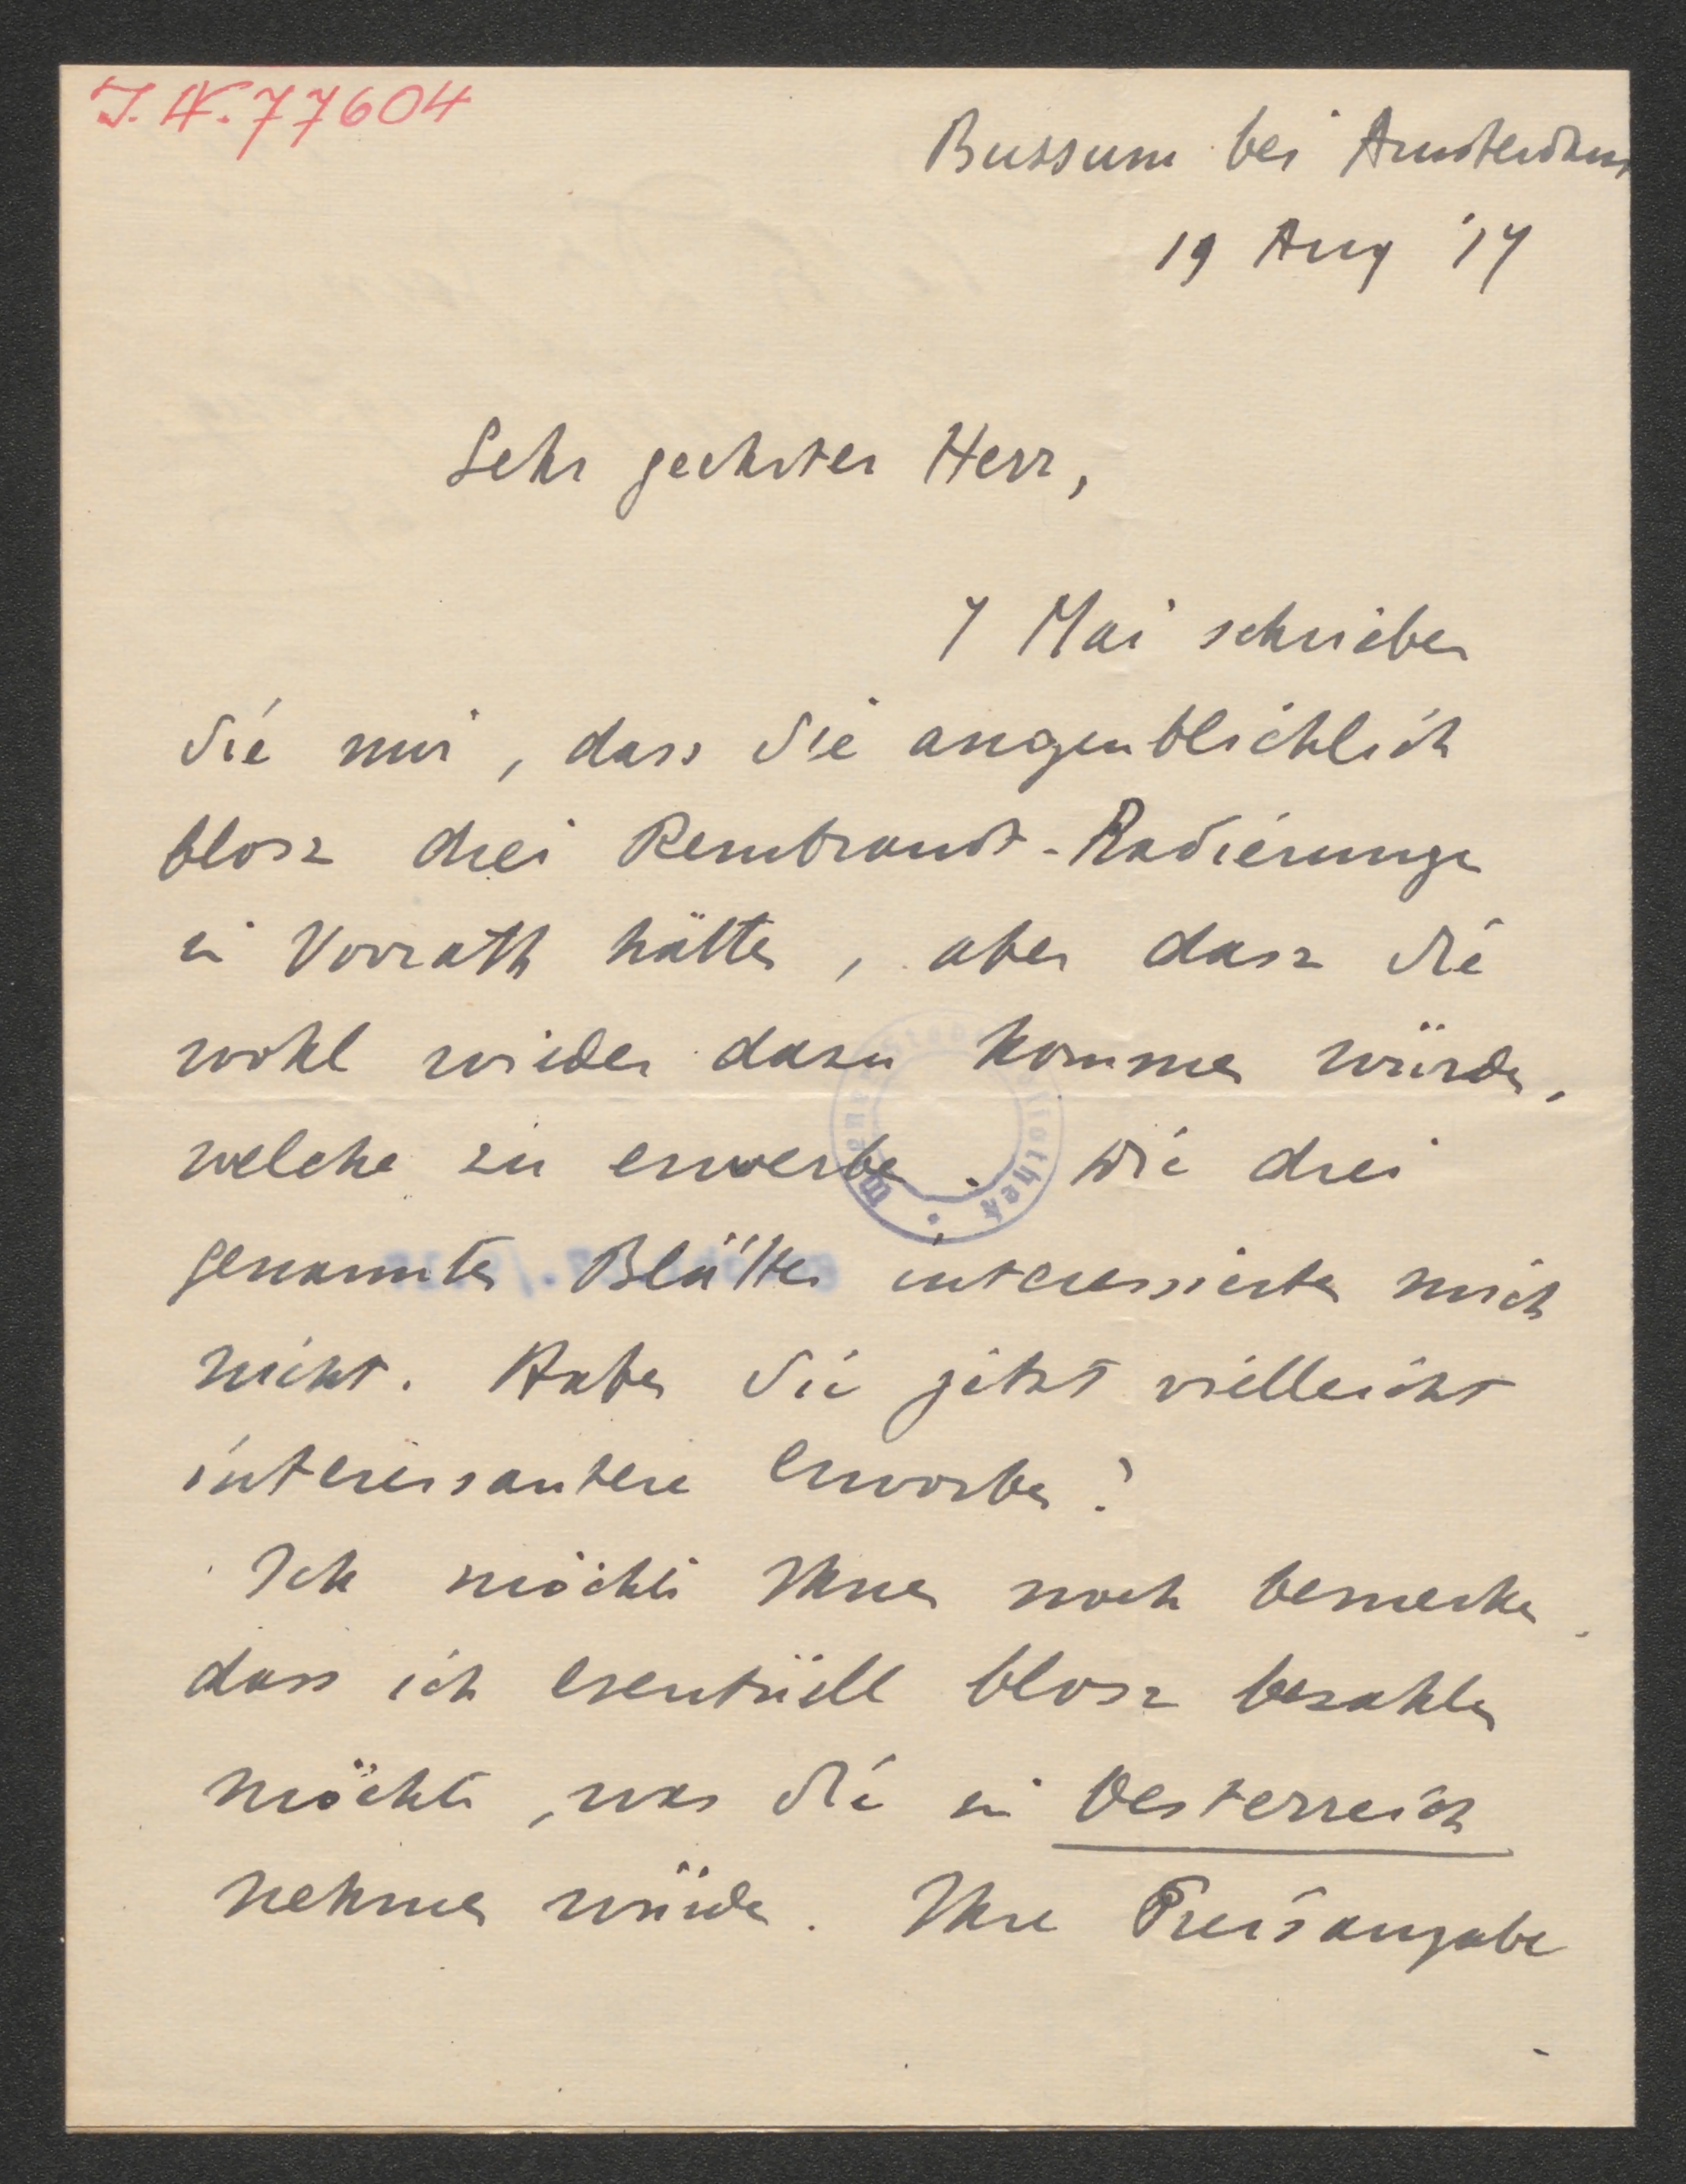 I.N. 77604
Bussum bei Amsterdam
19 Aug '17
Sehr geehrter Herr,
7 Mai schrieben
Sie mir, dass Sie augenblicklich
blosz drei Rembrandt-Radierungen
in Vorrath hätten, aber dasz Sie
wohl wieder dazu kommen würden,
welche zu erwerben. Die drei
genannten Blätter interessierten mich
nicht. Haben Sie jetzt vielleicht
interessantere erworben?
Ich möchte Ihnen noch bemerken
dass ich eventüell blosz bezahlen
möchte, was Sie in Oesterreich
nehmen würden. Ihre Preisangabe